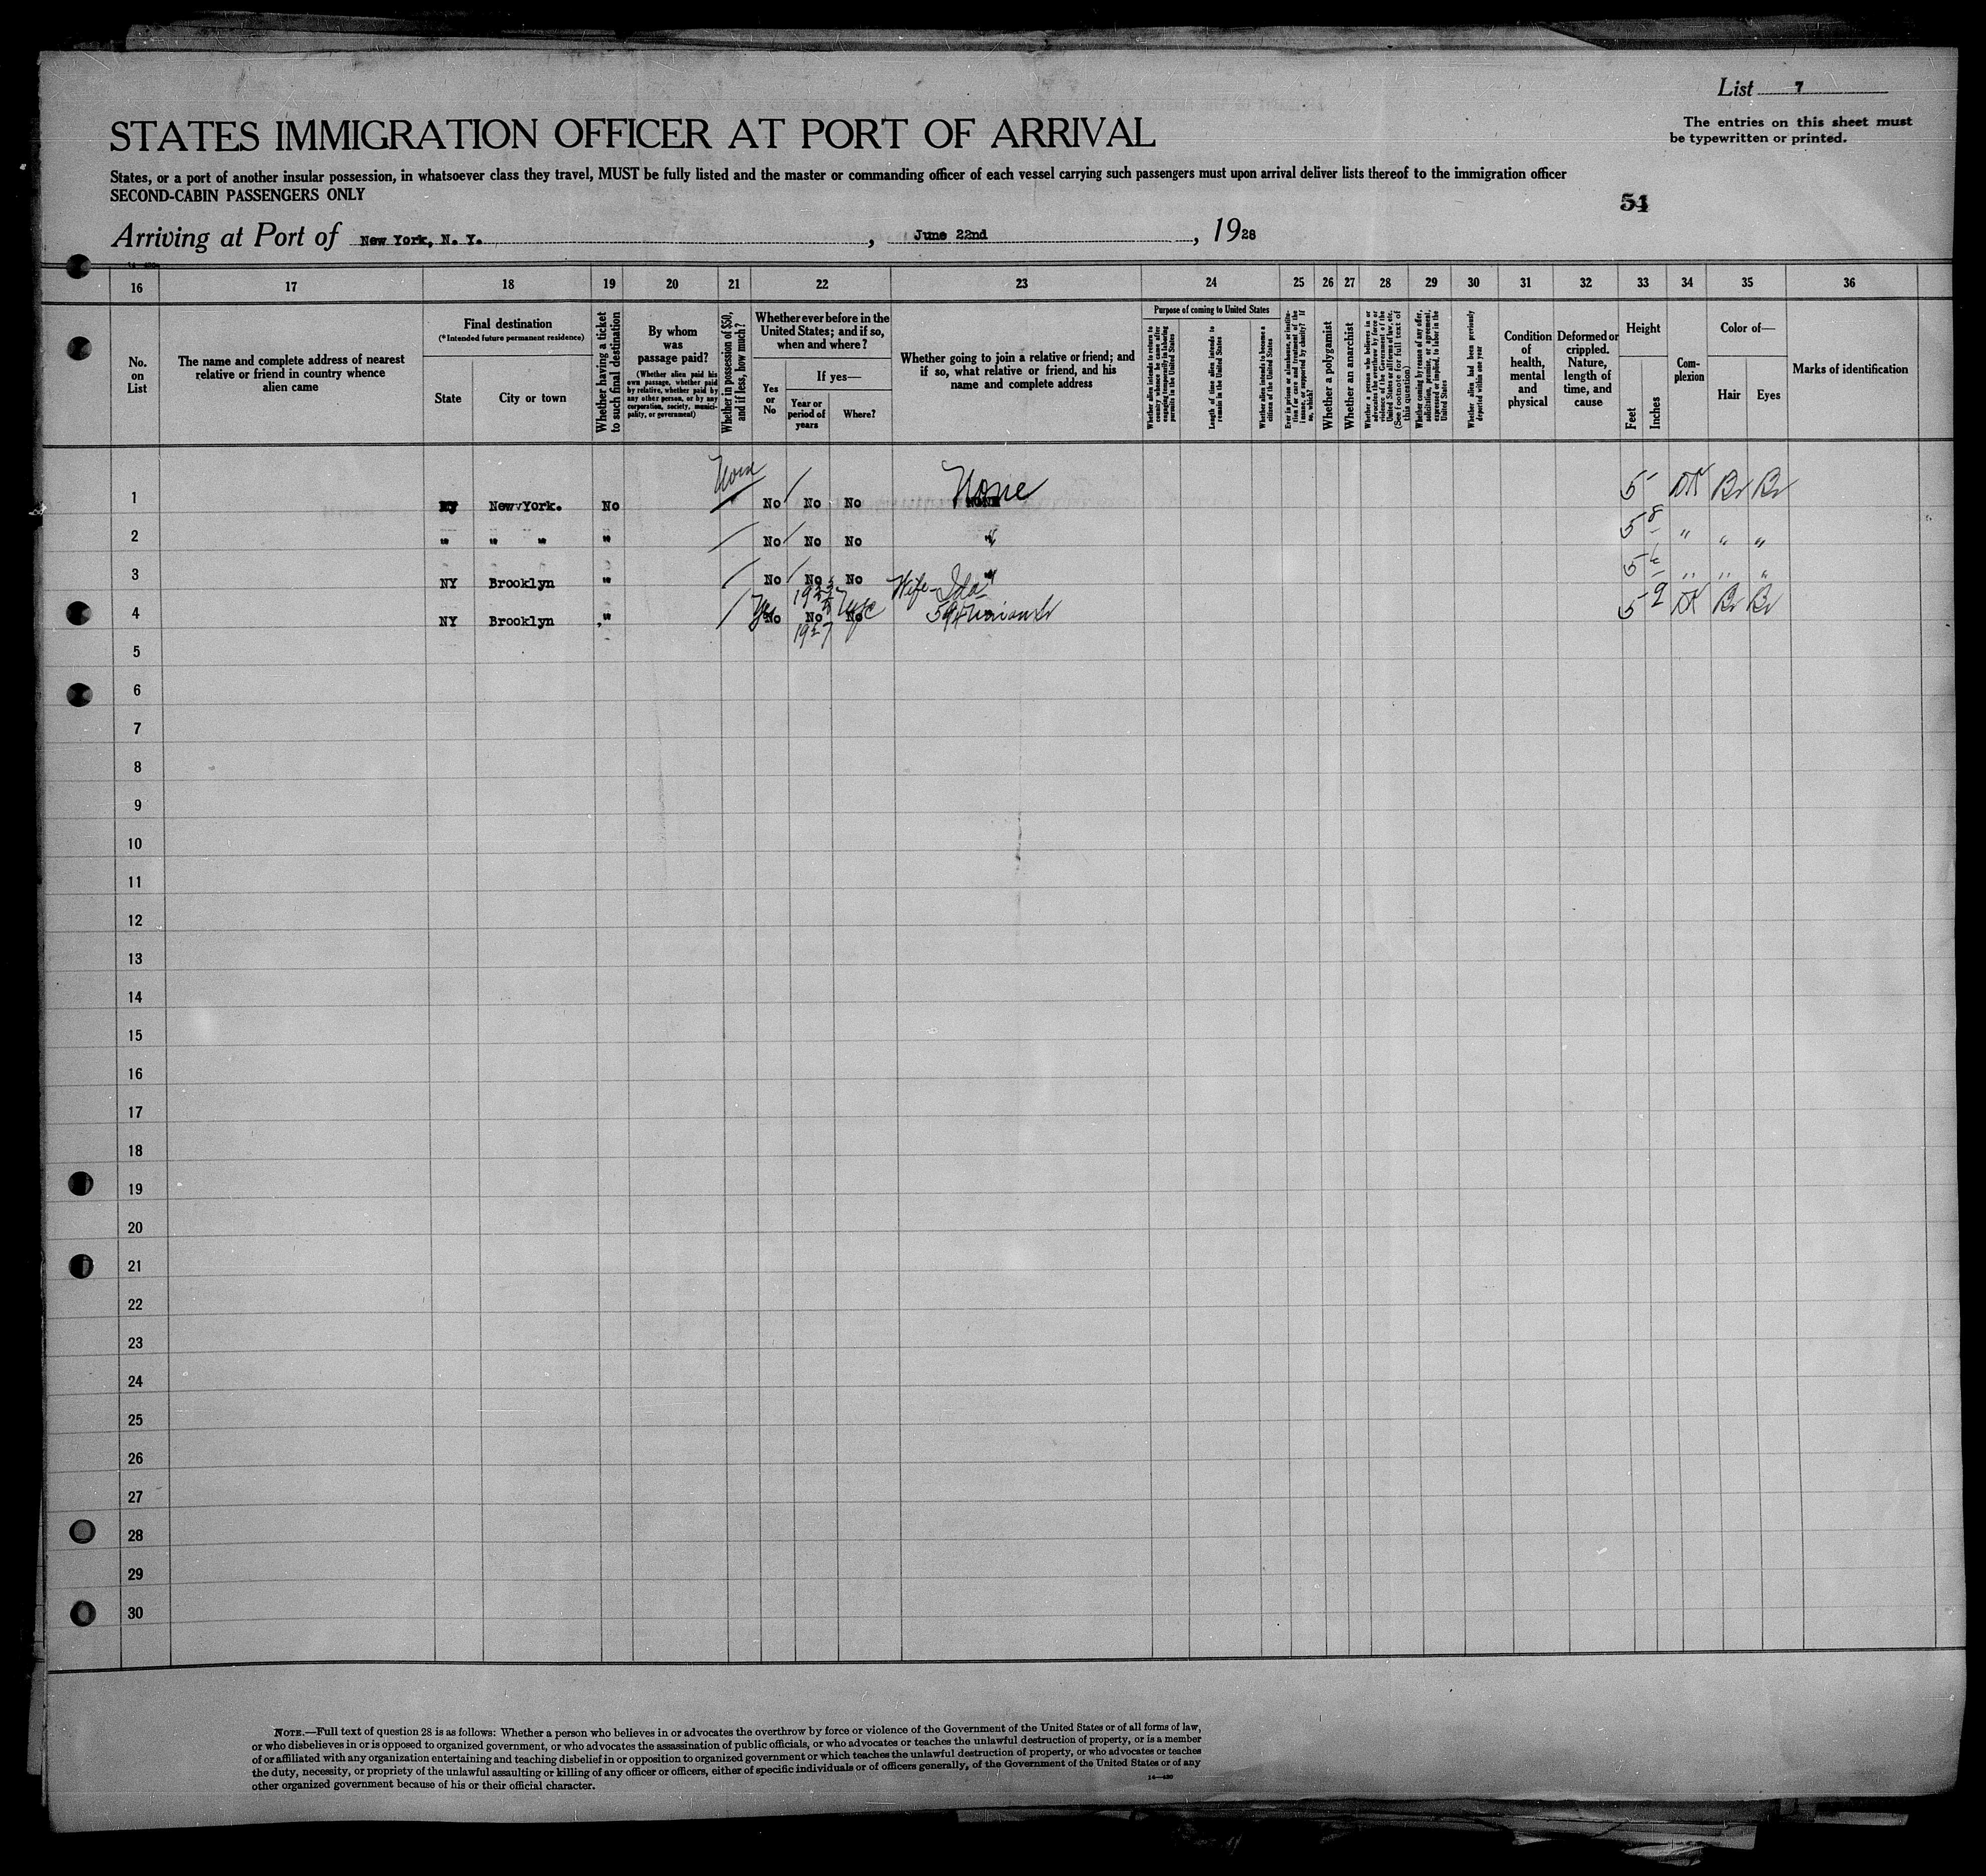 List 7
The entries on this sheet must
be typewritten or printed.
STATES IMMIGRATION OFFICER AT PORT OF ARRIVAL
States, or a port of another insular possession, in whatsoever class they travel, MUST be fully listed and the master or commanding officer of each vessel carrying such passengers must upon arrival deliver lists thereof to the immigration officer
SECOND-CABIN PASSENGERS ONLY
54
Arriving at Port of New York, N. Y., June 22nd, 1928
16 17 18 19 20 21 22 23 24 25 26 27 28 29 30 31 32 33 34 35 36
No.
on
List
The name and complete address of nearest
relative or friend in country whence
alien came
Final destination
(*Intended future permanent residence)
State
City or town
Whether having a ticket
to such final destination
By whom
was
passage paid?
(Whether alien paid his
own passage, whether paid
by relative, whether paid by
any other person, or by any
corporation, society, munici-
pality, or government)
Whether in possession of $50,
and if less, how much?
Whether ever before in the
United States; and if so,
when and where?
Yes
or
No
If yes—
Year or
period of
years
Where?
Whether going to join a relative or friend; and
if so, what relative or friend, and his
name and complete address
Purpose of coming to United States
Whether alien intends to return to
country whence he came after
engaging temporarily in laboring
pursuits in the United States
Length of time alien intends to
remain in the United States
Whether alien intends to become a
citizen of the United States
Ever in prison or almshouse, or institu-
tion for care and treatment of the
insane, or supported by charity? If
so, which?
Whether a polygamist
Whether an anarchist
Whether a person who believes in or
advocates the overthrow by force or
violence of the Government of the
United States or all forms of law, etc.
(See footnote for full text of
this question)
Whether coming by reason of any offer,
solicitation, promise, or agreement,
expressed or implied, to labor in the
United States
Whether alien had been previously
deported within one year
Condition
of
health,
mental
and
physical
Deformed or
crippled.
Nature,
length of
time, and
cause
Height
Feet
Inches
Com-
plexion
Color of—
Hair
Eyes
Marks of identification
None
1 NY New York. No No No No None 5 DK Br Br
2 " " " " No No No " 5 8 " " "
3 NY Brooklyn " No No No " 5 6 " " "
Wife - Ida
4 NY Brooklyn " Yes No No No 594 5 9 DK Br Br
1927
5
6
7
8
9
10
11
12
13
14
15
16
17
18
19
20
21
22
23
24
25
26
27
28
29
30
NOTE.—Full text of question 28 is as follows: Whether a person who believes in or advocates the overthrow by force or violence of the Government of the United States or of all forms of law,
or who disbelieves in or is opposed to organized government, or who advocates the assassination of public officials, or who advocates or teaches the unlawful destruction of property, or is a member
of or affiliated with any organization entertaining and teaching disbelief in or opposition to organized government or which teaches the unlawful destruction of property, or who advocates or teaches
the duty, necessity, or propriety of the unlawful assaulting or killing of any officer or officers, either of specific individuals or of officers generally, of the Government of the United States or of any
other organized government because of his or their official character.
14—430